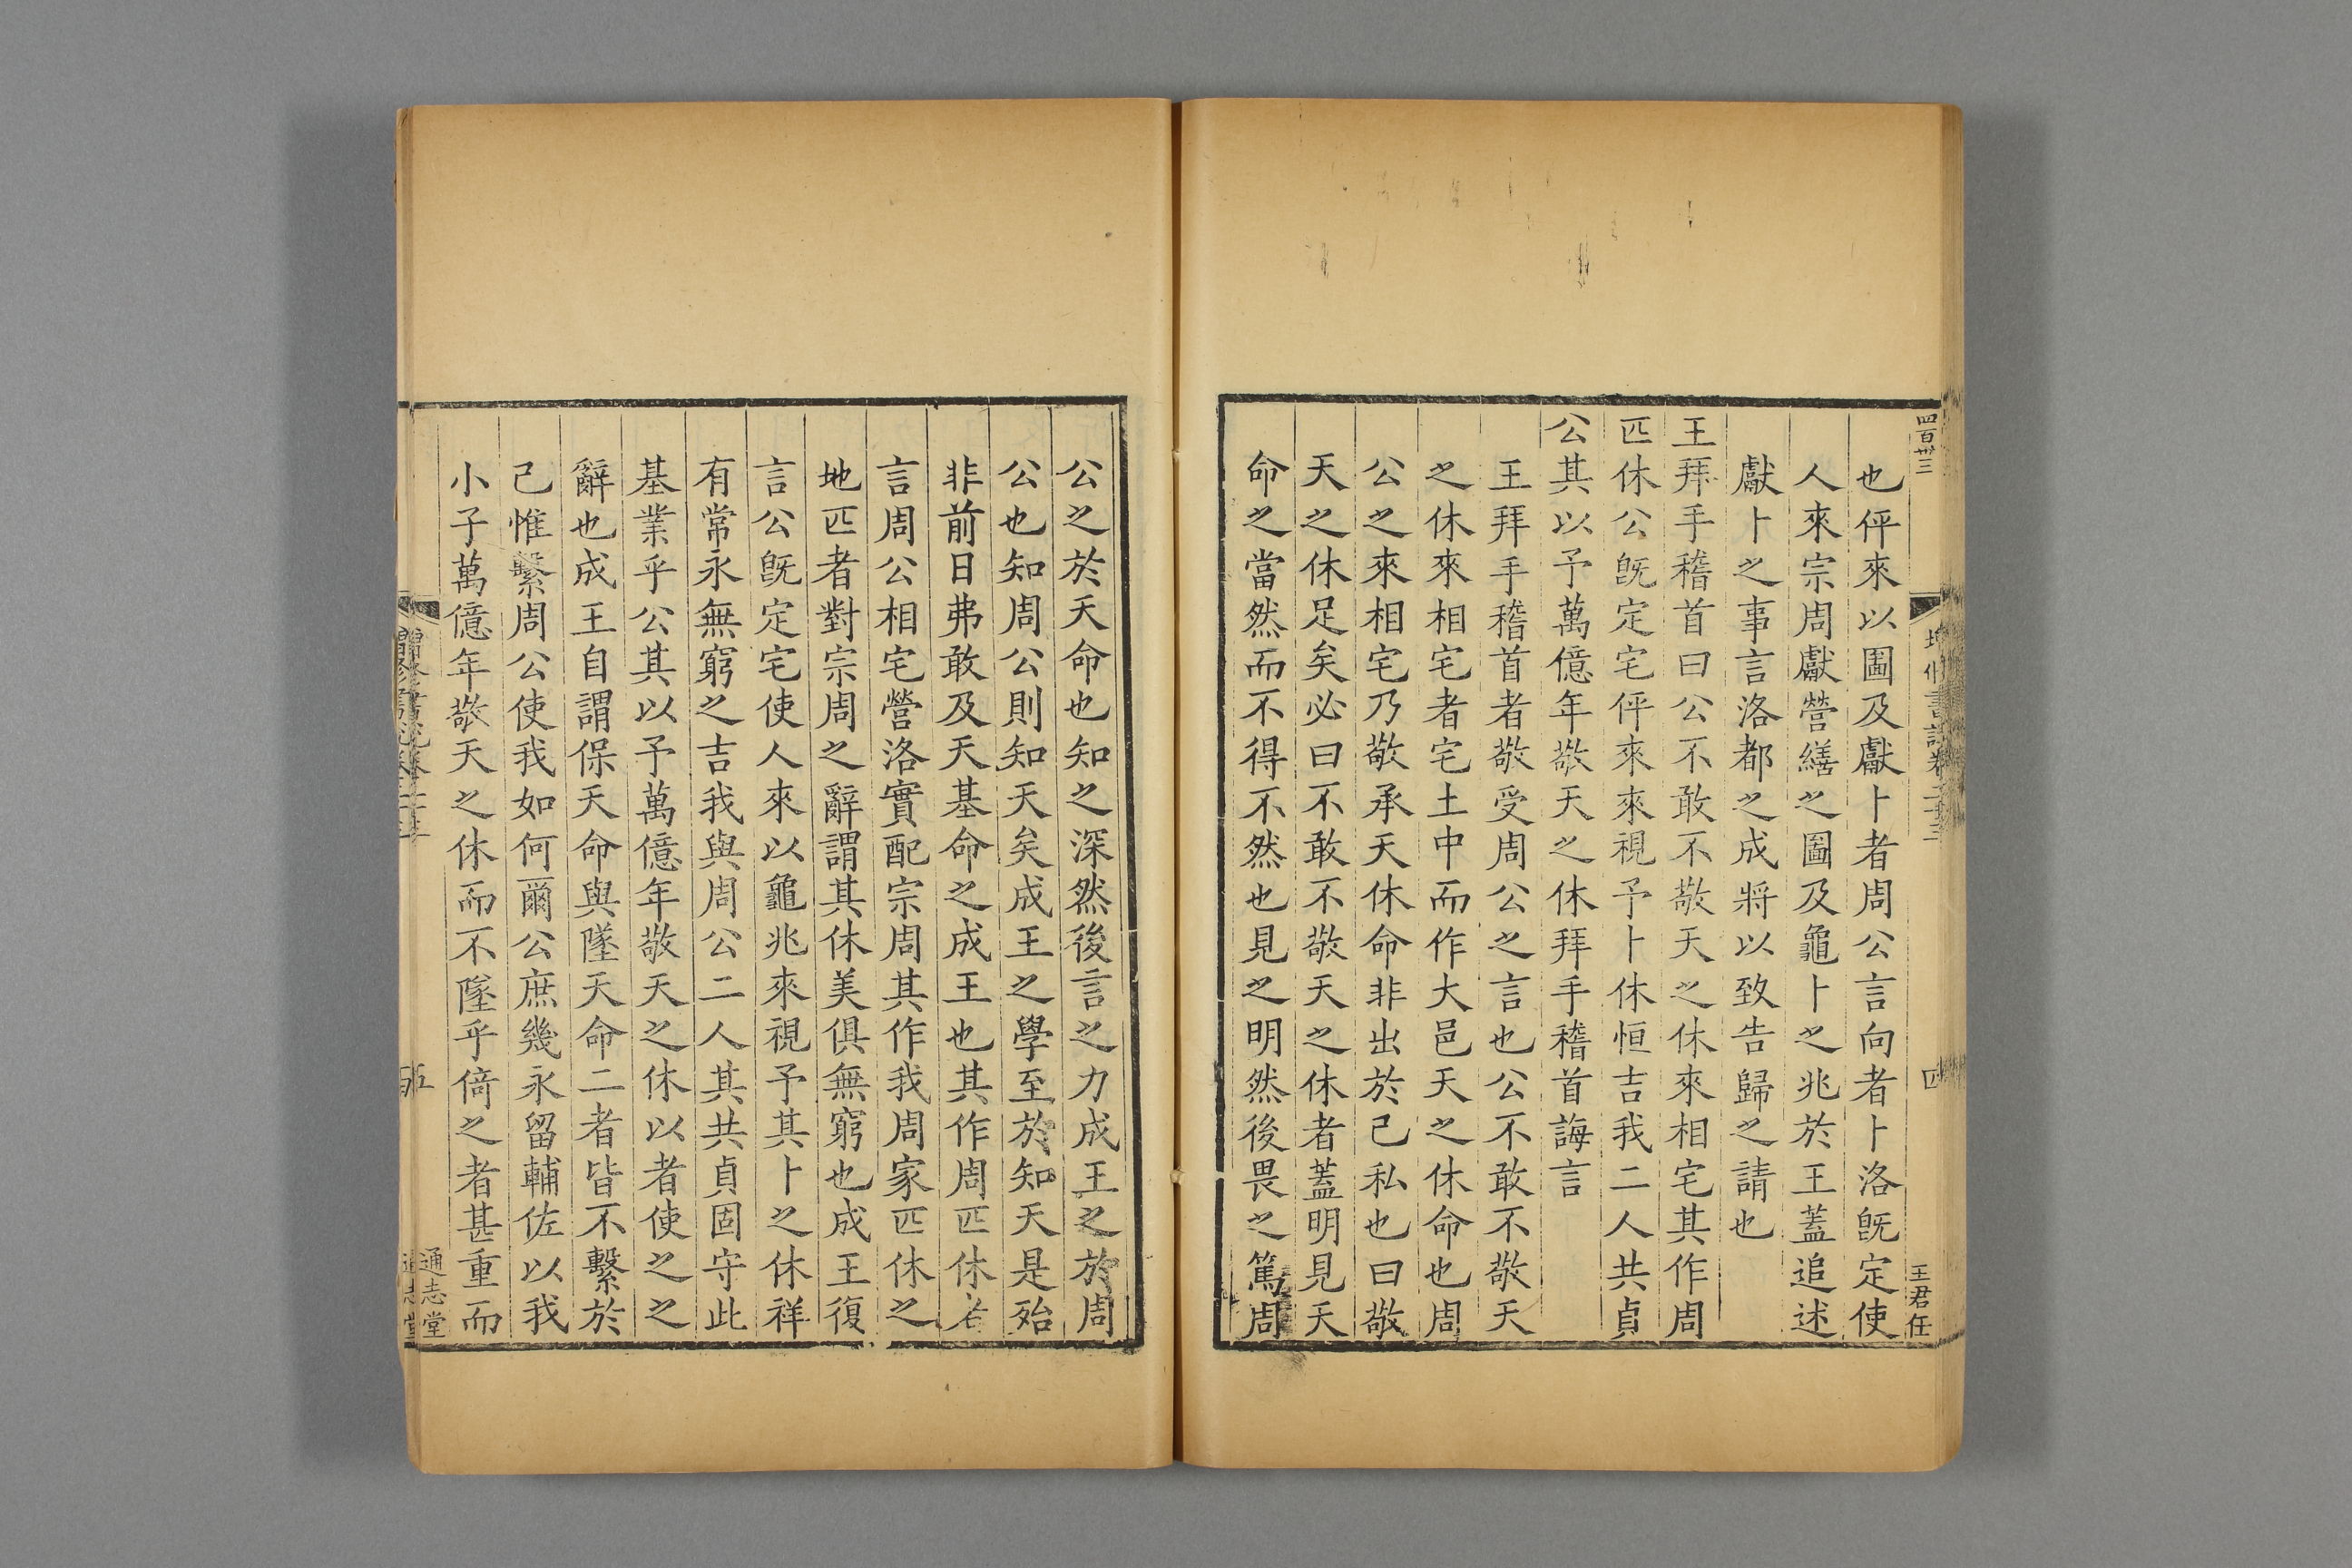 四百卅三
四
王君任
也伻來以圖及獻卜者周公言向者卜洛旣定使
人來宗周獻營繕之圖及龜卜之兆於王蓋追述
獻卜之事言洛都之成將以致告歸之請也
王拜手稽首曰公不敢不敬天之休來相宅其作周
匹休公旣定宅伻來來視予卜休恒吉我二人共貞
公其以予萬億年敬天之休拜手稽首誨言
王拜手稽首者敬受周公之言也公不敢不敬天
之休來相宅者宅土中而作大邑天之休命也周
公之來相宅乃敬承天休命非出於己私也曰敬
天之休足矣必曰不敢不敬天之休者蓋明見天
命之當然而不得不然也見之明然後畏之篤周
公之於天命也知之深然後言之力成王之於周
公也知周公則知天矣成王之學至於知天是殆
非前日弗敢及天基命之成王也其作周匹休者
言周公相宅營洛實配宗周其作我周家匹休之
地匹者對宗周之辭謂其休美俱無窮也成王復
言公旣定宅使人來以龜兆來視予其卜之休祥
有常永無窮之吉我與周公二人其共貞固守此
基業乎公其以予萬億年敬天之休以者使之之
辭也成王自謂保天命與墜天命二者皆不繫於
己惟繫周公使我如何爾公庶幾永留輔佐以我
小子萬億年敬天之休而不墜乎倚之者甚重而
五
通志堂